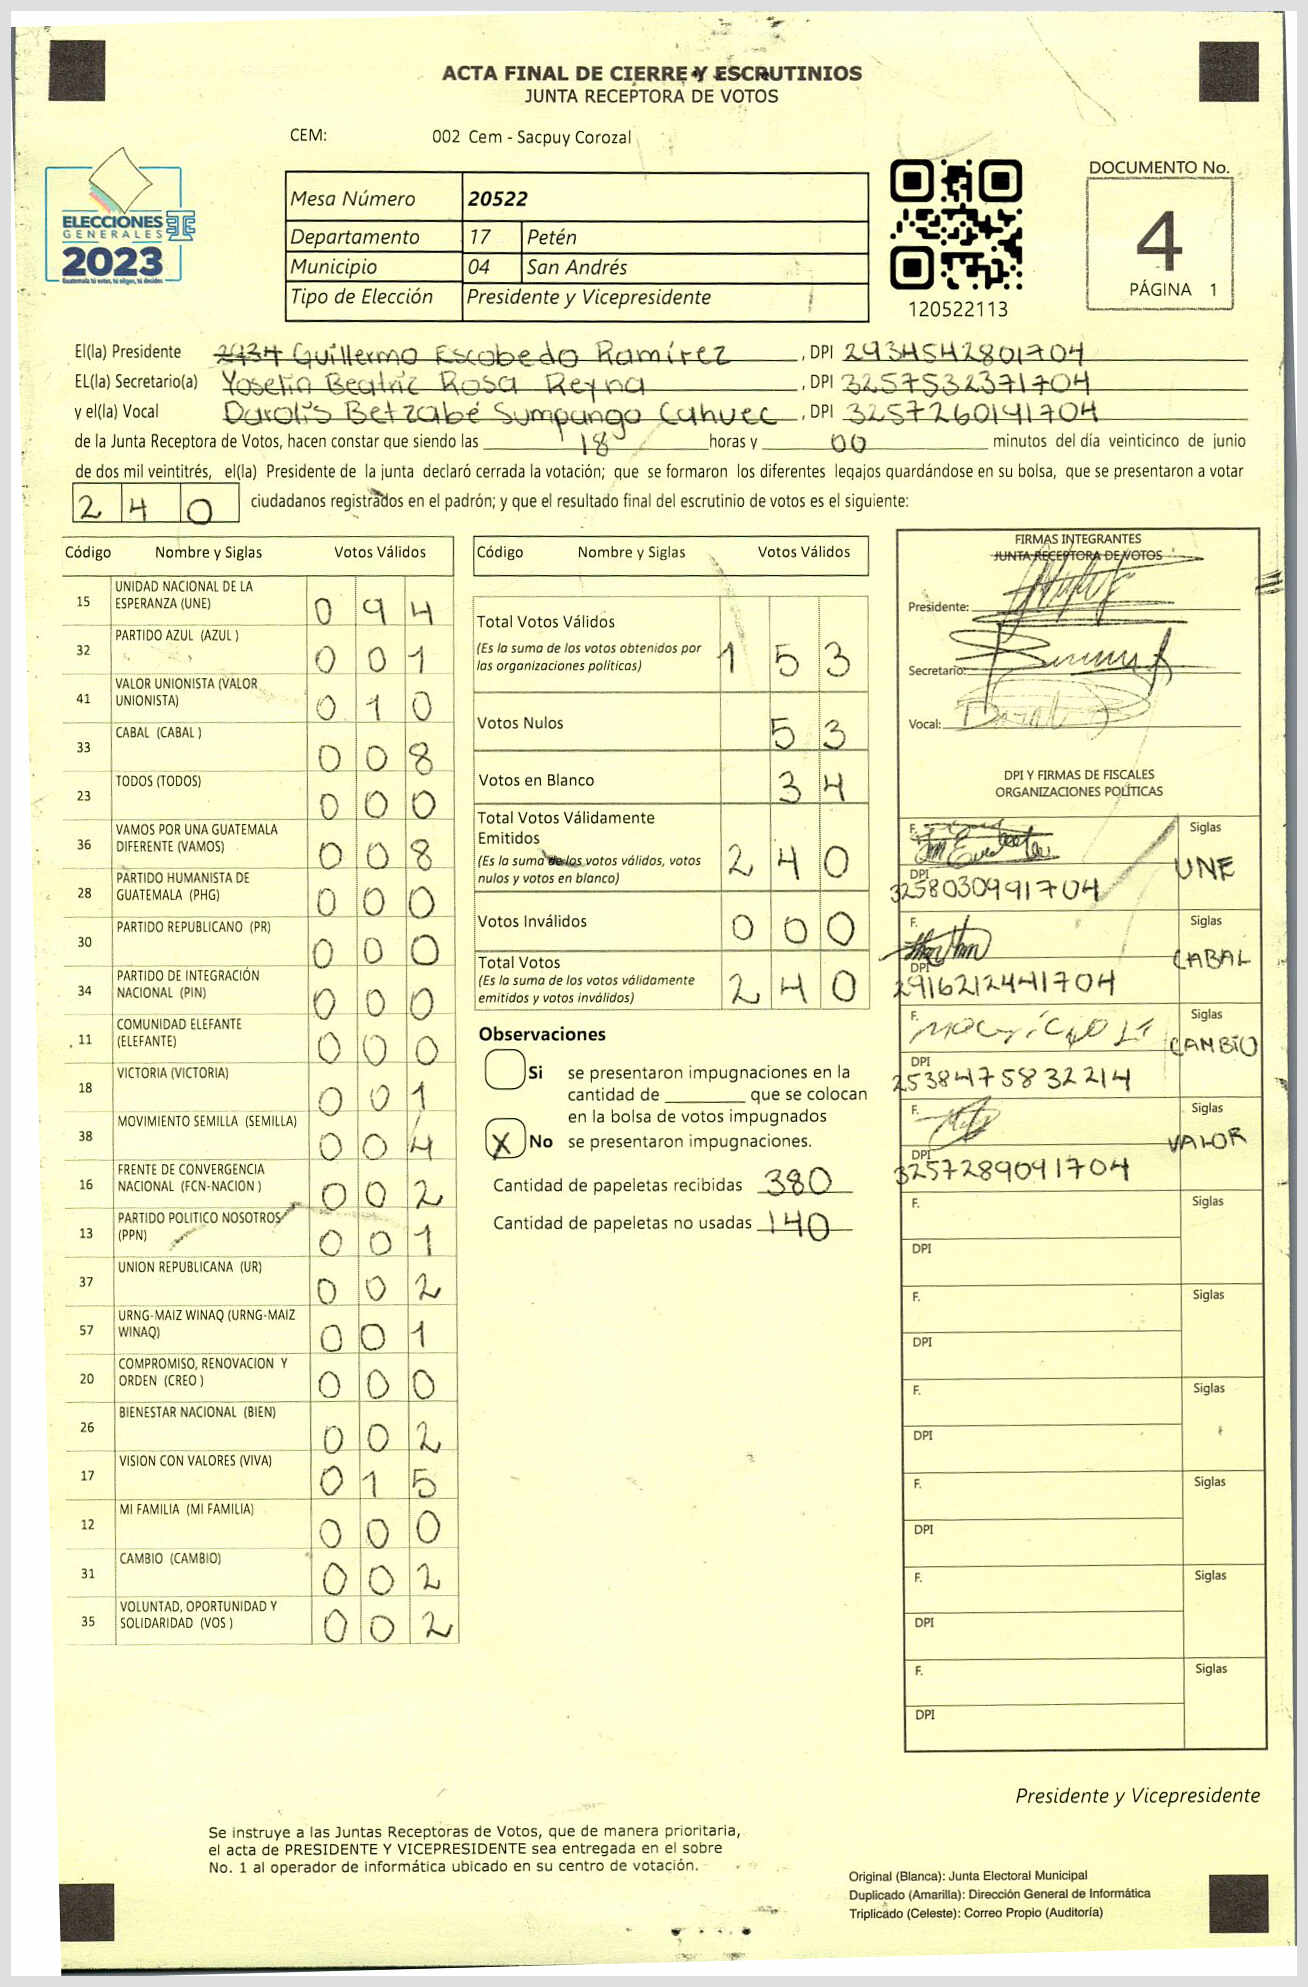 ACTA FINAL DE CIERRE Y ESCRUTINIOS
JUNTA RECEPTORA DE VOTOS
CEM: 002 Cem - Sacpuy Corozal
ELECCIONES
GENERALES
2023
Guatemala tú votas, tú eliges, tú decides
Mesa Número 20522
Departamento 17 Petén
Municipio 04 San Andrés
Tipo de Elección Presidente y Vicepresidente
120522113
DOCUMENTO No.
4
PÁGINA 1
El(la) Presidente 2934 Guillermo Escobedo Ramírez , DPI 2934542801704
EL(la) Secretario(a) Yoselin Beatriz Rosa Reyna , DPI 3257532371704
y el(la) Vocal Darolis Betzabé Sumpango Cahuec , DPI 3257260141704
de la Junta Receptora de Votos, hacen constar que siendo las 18 horas y 00 minutos del día veinticinco de junio
de dos mil veintitrés, el(la) Presidente de la junta declaró cerrada la votación; que se formaron los diferentes legajos quardándose en su bolsa, que se presentaron a votar
240 ciudadanos registrados en el padrón; y que el resultado final del escrutinio de votos es el siguiente:
Código Nombre y Siglas Votos Válidos
15 UNIDAD NACIONAL DE LA ESPERANZA (UNE) 094
32 PARTIDO AZUL (AZUL ) 001
41 VALOR UNIONISTA (VALOR UNIONISTA) 010
33 CABAL (CABAL ) 008
23 TODOS (TODOS) 000
36 VAMOS POR UNA GUATEMALA DIFERENTE (VAMOS) 008
28 PARTIDO HUMANISTA DE GUATEMALA (PHG) 000
30 PARTIDO REPUBLICANO (PR) 000
34 PARTIDO DE INTEGRACIÓN NACIONAL (PIN) 000
11 COMUNIDAD ELEFANTE (ELEFANTE) 000
18 VICTORIA (VICTORIA) 001
38 MOVIMIENTO SEMILLA (SEMILLA) 004
16 FRENTE DE CONVERGENCIA NACIONAL (FCN-NACION ) 002
13 PARTIDO POLITICO NOSOTROS (PPN) 001
37 UNION REPUBLICANA (UR) 002
57 URNG-MAIZ WINAQ (URNG-MAIZ WINAQ) 001
20 COMPROMISO, RENOVACION Y ORDEN (CREO ) 000
26 BIENESTAR NACIONAL (BIEN) 002
17 VISION CON VALORES (VIVA) 015
12 MI FAMILIA (MI FAMILIA) 000
31 CAMBIO (CAMBIO) 002
35 VOLUNTAD, OPORTUNIDAD Y SOLIDARIDAD (VOS ) 002
Código Nombre y Siglas Votos Válidos
Total Votos Válidos
(Es la suma de los votos obtenidos por
las organizaciones políticas) 153
Votos Nulos 53
Votos en Blanco 34
Total Votos Válidamente
Emitidos
(Es la suma de los votos válidos, votos
nulos y votos en blanco) 240
Votos Inválidos 000
Total Votos
(Es la suma de los votos válidamente
emitidos y votos inválidos) 240
Observaciones
Si se presentaron impugnaciones en la
cantidad de ________ que se colocan
en la bolsa de votos impugnados
X No se presentaron impugnaciones.
Cantidad de papeletas recibidas 380
Cantidad de papeletas no usadas 140
FIRMAS INTEGRANTES
JUNTA RECEPTORA DE VOTOS
Presidente:
Secretario:
Vocal:
DPI Y FIRMAS DE FISCALES
ORGANIZACIONES POLÍTICAS
F. Siglas UNE
DPI 3258030991704
F. Siglas CABAL
DPI 2916212441704
F. Siglas CAMBIO
DPI 2538475832214
F. Siglas VALOR
DPI 3257289091704
F. Siglas
DPI
F. Siglas
DPI
F. Siglas
DPI
F. Siglas
DPI
F. Siglas
DPI
F. Siglas
DPI
Presidente y Vicepresidente
Se instruye a las Juntas Receptoras de Votos, que de manera prioritaria,
el acta de PRESIDENTE Y VICEPRESIDENTE sea entregada en el sobre
No. 1 al operador de informática ubicado en su centro de votación.
Original (Blanca): Junta Electoral Municipal
Duplicado (Amarilla): Dirección General de Informática
Triplicado (Celeste): Correo Propio (Auditoría)